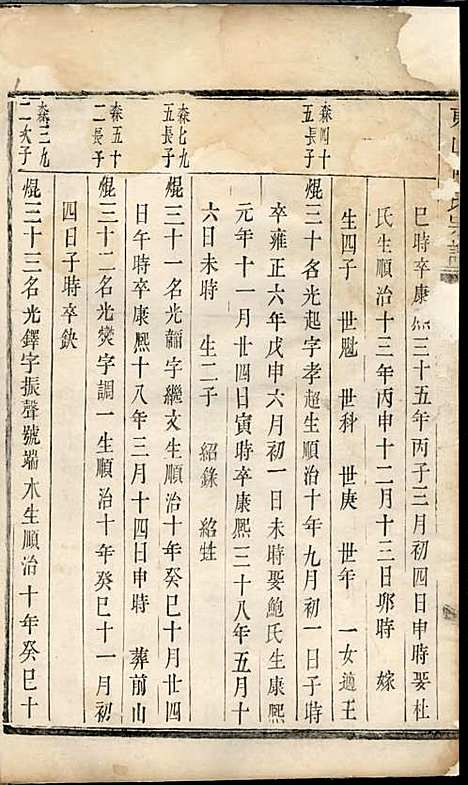 巳時卒康熙三十五年丙子三月初四日申時娶杜
氏生順治十三年丙申十二月十三日邜時　嫁
生四子　世魁　世科　世庚　世年　一女適王
森四十
五長子
焜三十名光起字孝超生順治十年九月初一日子時
卒雍正六年戊申六月初一日未時娶鮑氏生康熙
元年十一月廿四日寅時卒康熙三十八年五月十
六日未時　生二子　紹錄　紹甡
森七九
五長子
焜三十一名光韛字繼文生順治十年癸巳十月廿四
日午時卒康熙十八年三月十四日申時　葬前山
森五十
二長子
焜三十二名光爕字調一生順治十年癸巳十一月初
四日子時卒缺
森三九
二次子
焜三十三名光鐸字振聲號端木生順治十年癸巳十